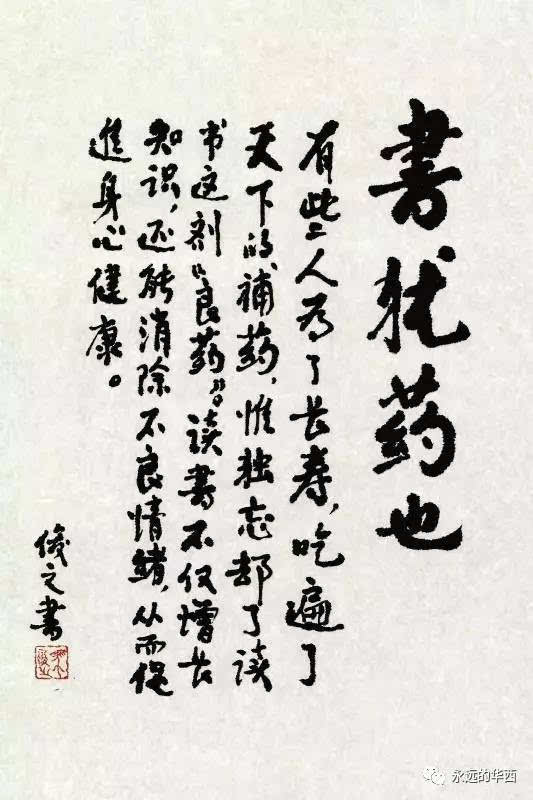 書犹药也
有些人为了长寿，吃遍了
天下的补药，惟独忘却了读
书这剂“良药”。读書不仅增长
知识，还能消除不良情绪，从而促
进身心健康。
俊之書
永远的华西